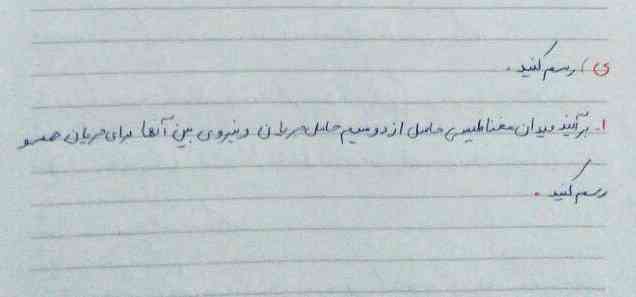 ی) رسم کنید.
۱. برآیند میدان مغناطیسی حاصل از دو سیم حامل جریان و نیروی بین آنها برای جریان همسو
رسم کنید.